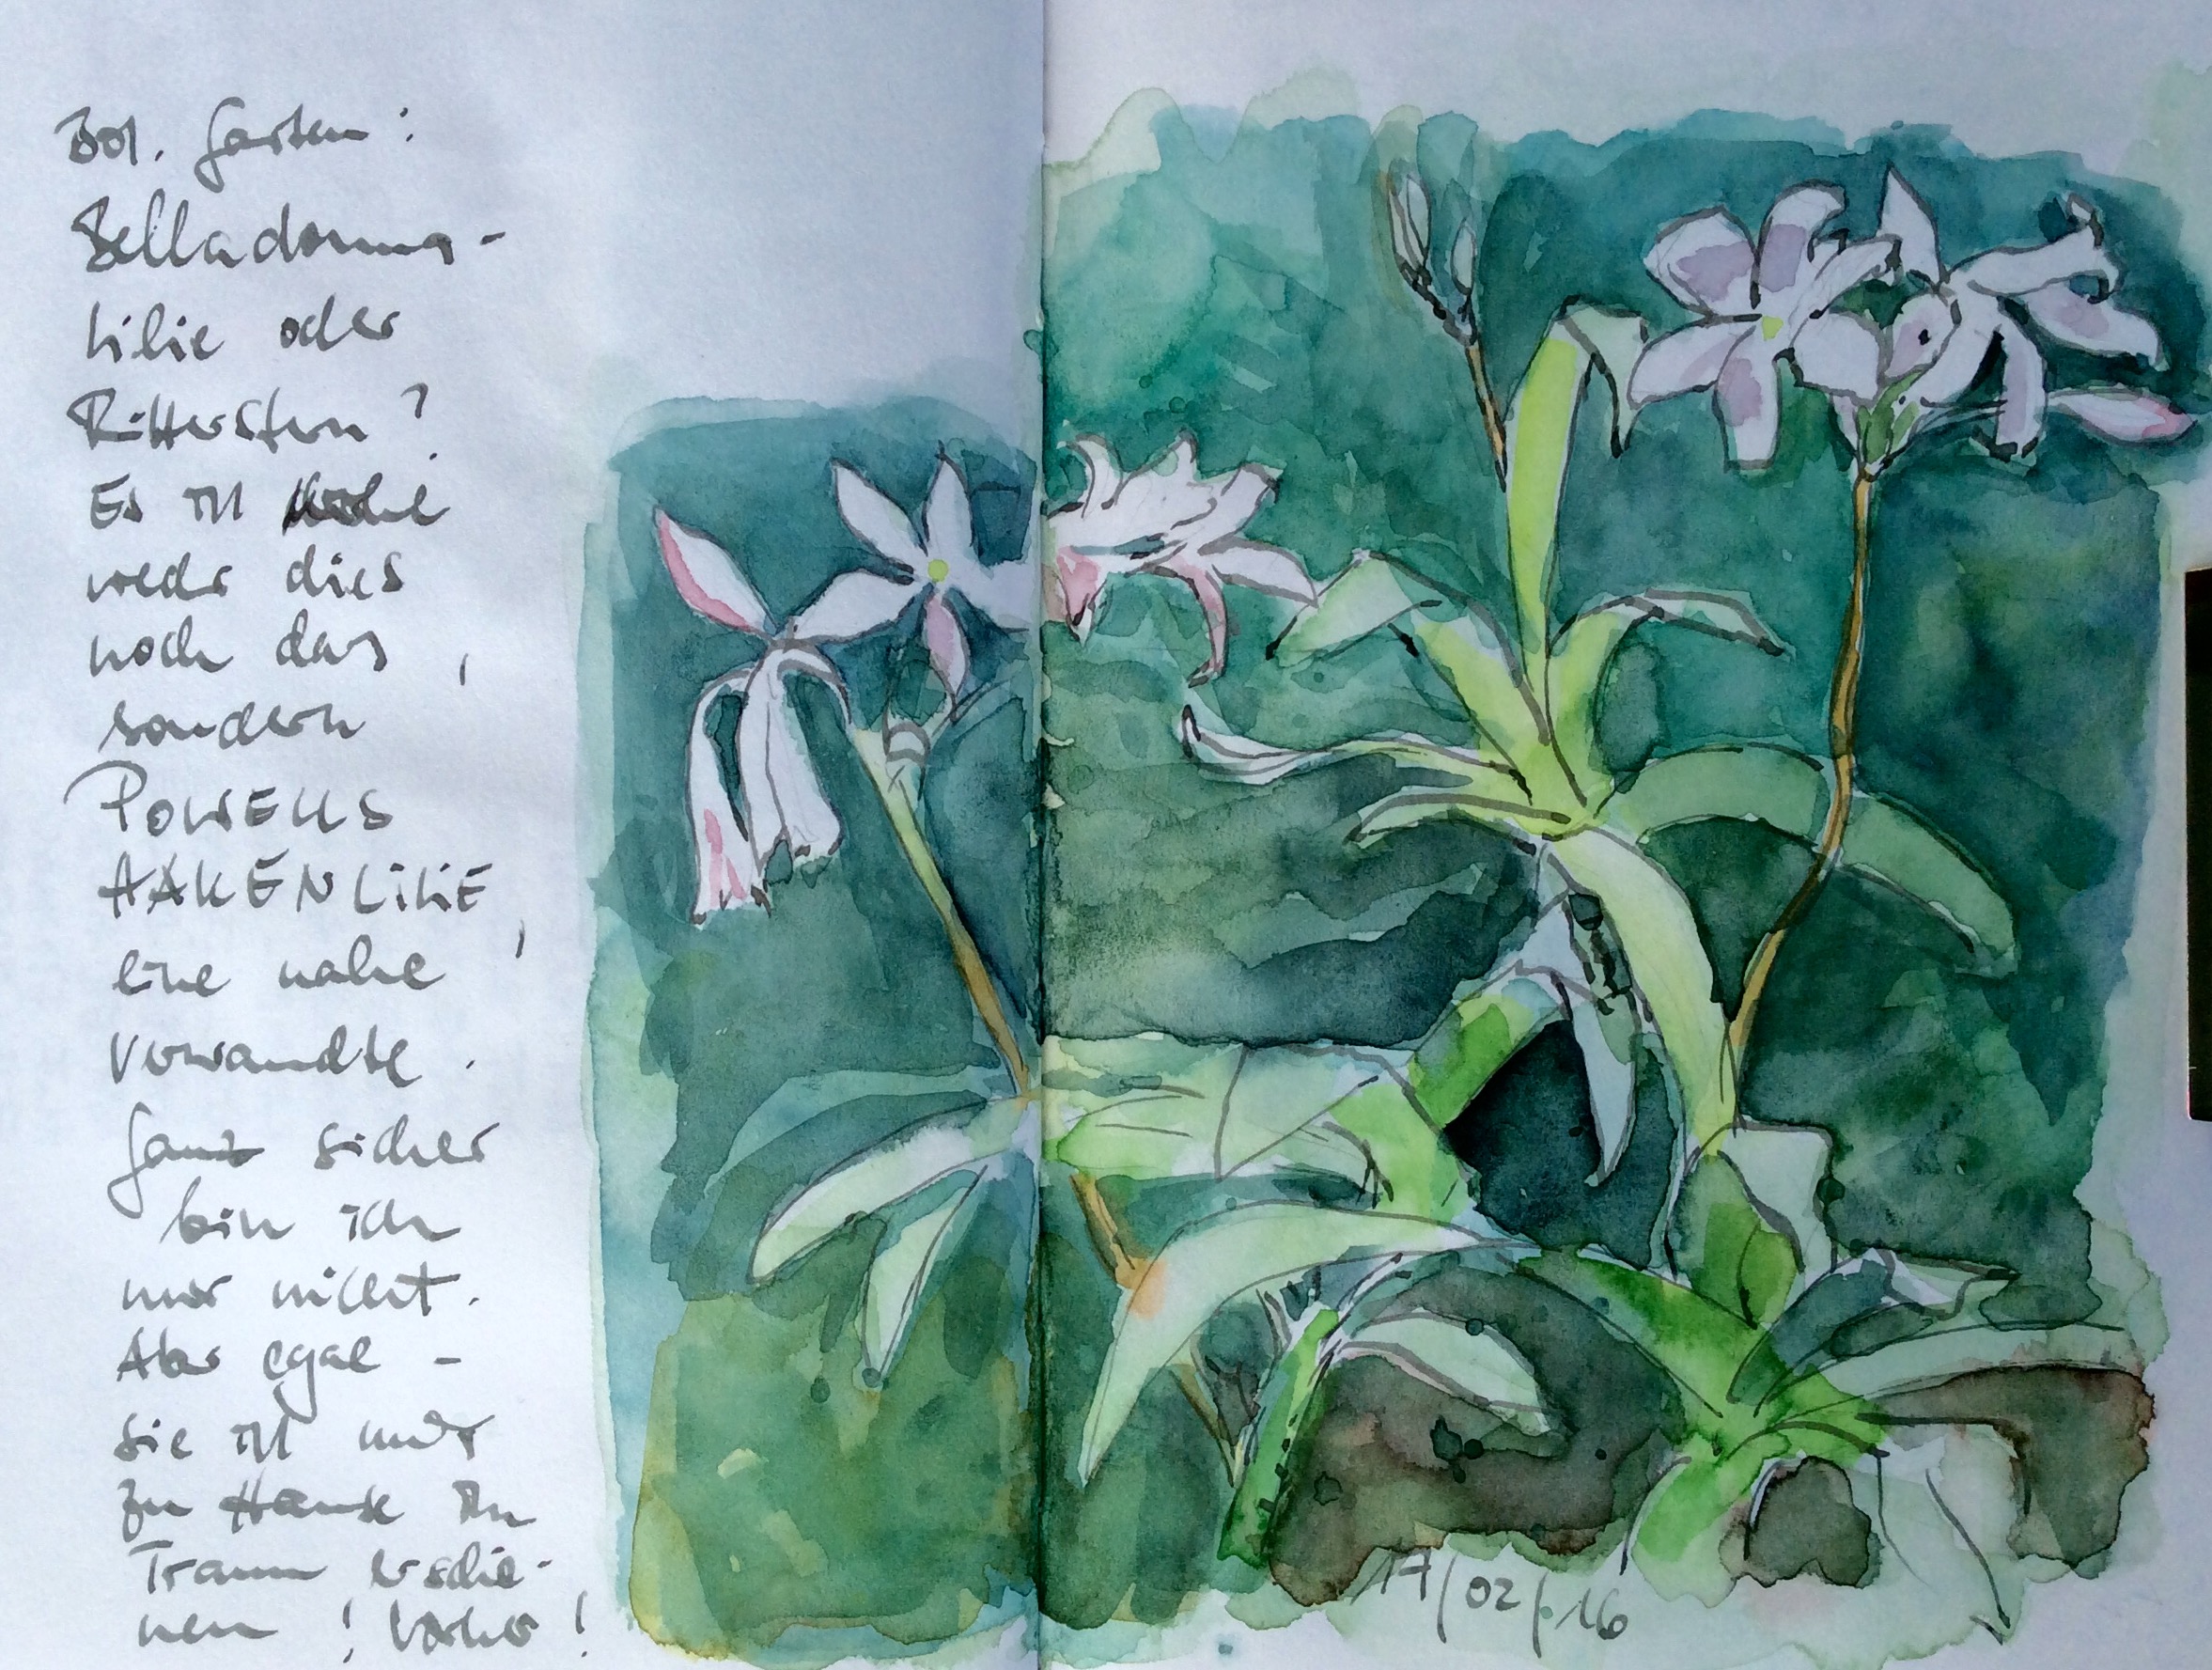 Bot. Garten:
Belladonna-
Lilie oder
Ritterstern?
Es ist
weder dies
noch das,
sondern
POWELLS
HAKENLiLiE,
eine nahe
Verwandte.
Ganz sicher
bin ich
mir nicht.
Aber egal -
sie ist mir
zu Hause im
Traum erschie-
nen! Vorher!
17/02/16